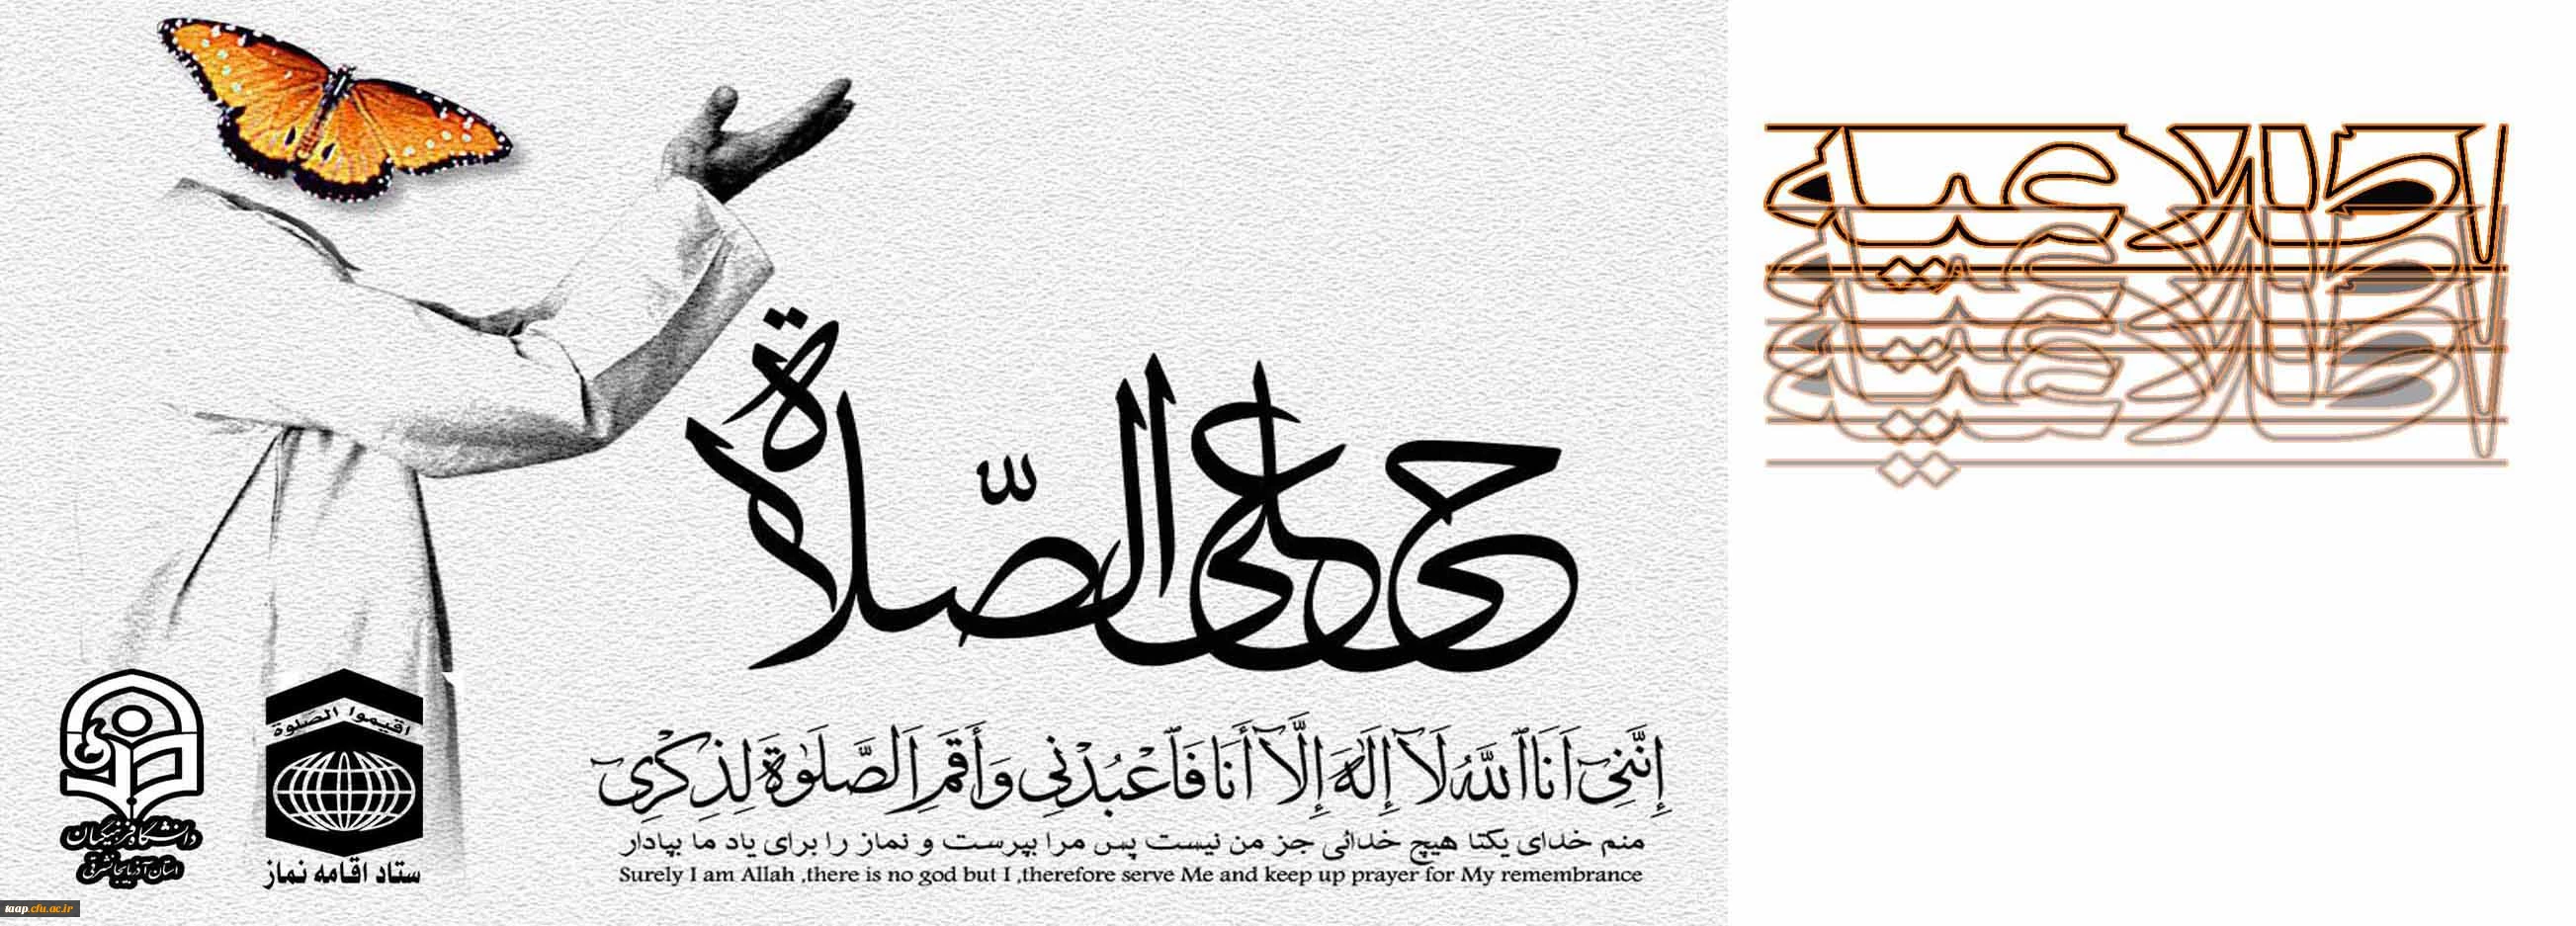 اطلاعیه
حی علی الصّلاة
إِنَّنِیٓ اَنَا ٱللَّهُ لَآ إِلَٰهَ إِلَّآ أَنَا فَٱعْبُدْنِی وَأَقِمِ اَلصَّلَوٰةَ لِذِکْرِیٓ
منم خدای یکتا هیچ خدائی جز من نیست پس مرا بپرست و نماز را برای یاد ما بپادار
Surely I am Allah ,there is no god but I ,therefore serve Me and keep up prayer for My remembrance
اقیموا الصلوة
ستاد اقامه نماز
دانشگاه فرهنگیان
استان آذربایجان شرقی
taap.cfu.ac.ir